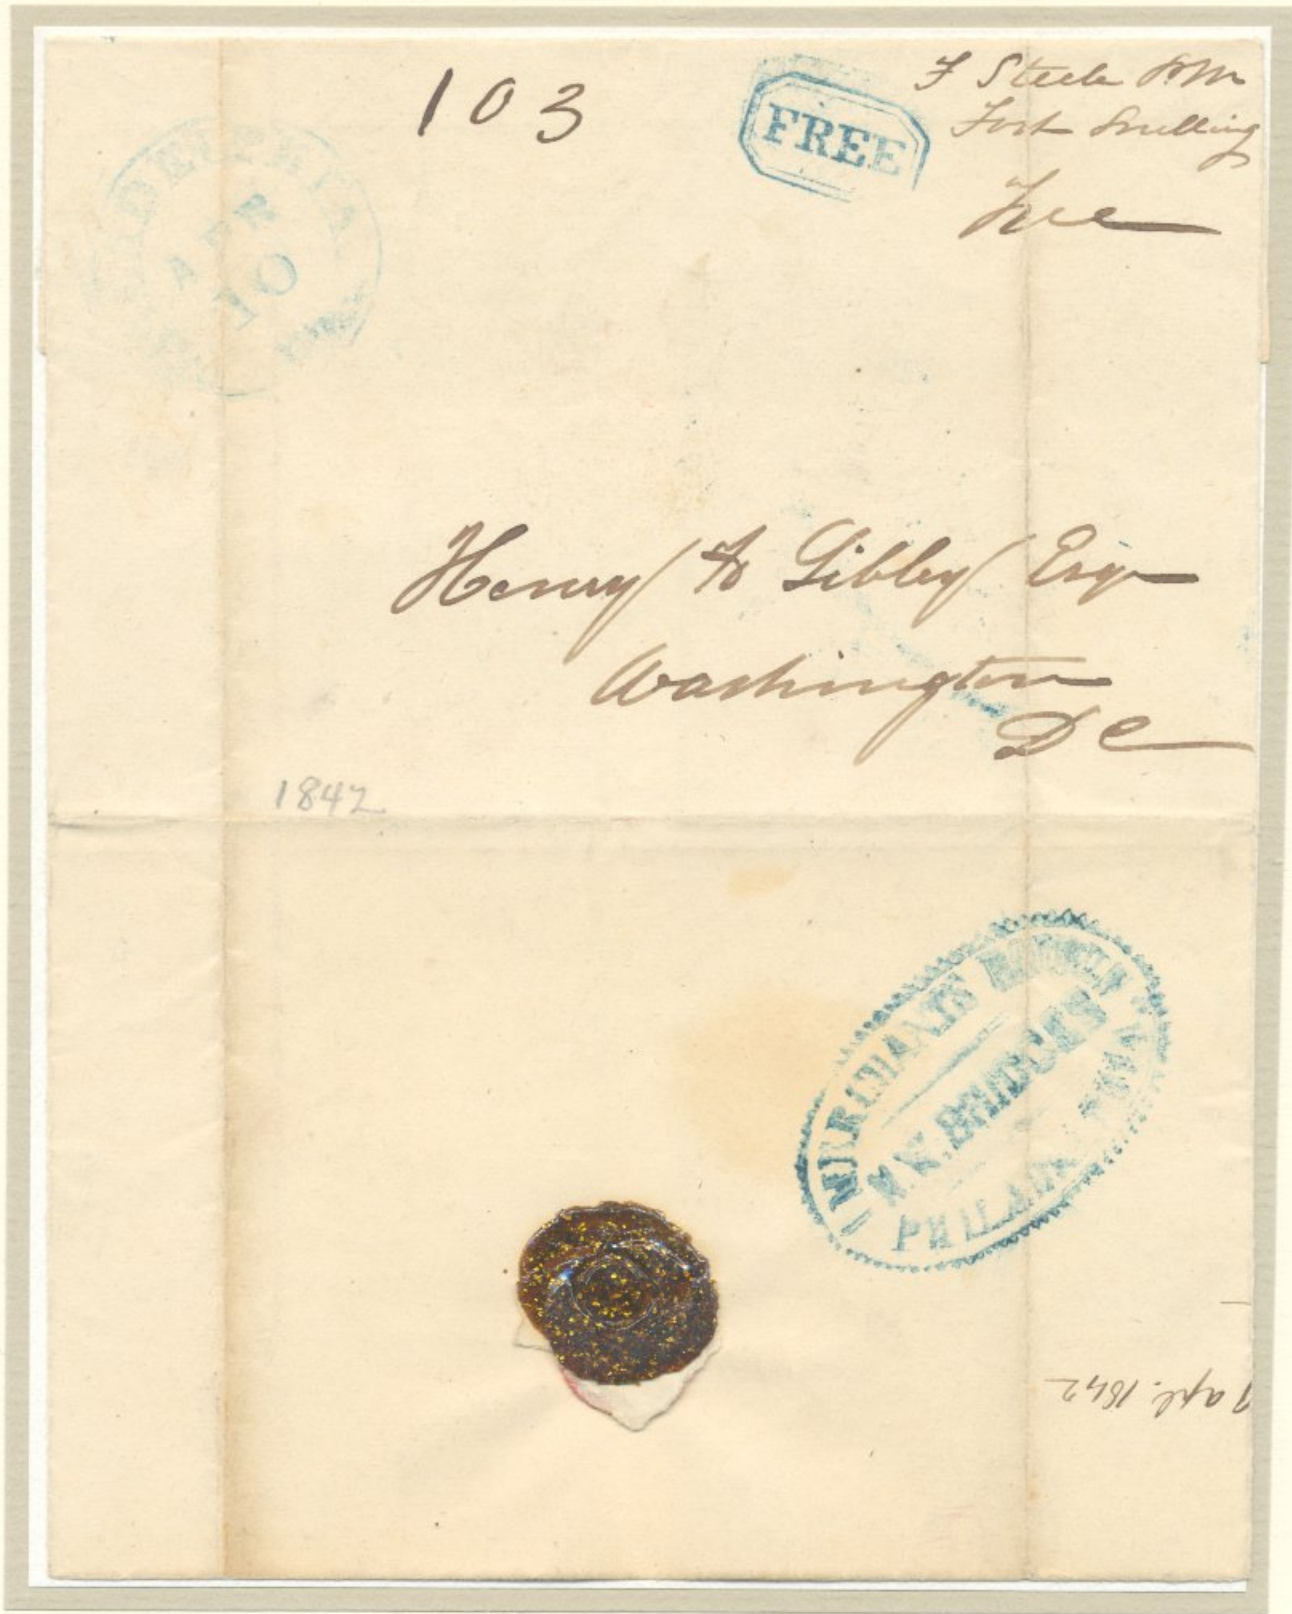 103
FREE
F Steele P.M
Fort Snelling
Free
APR
10
Henry H Sibley Esqr
Washington
DC
1842
MERCHANTS HOTEL
BRIDGES
PHILADA
apl. 1842